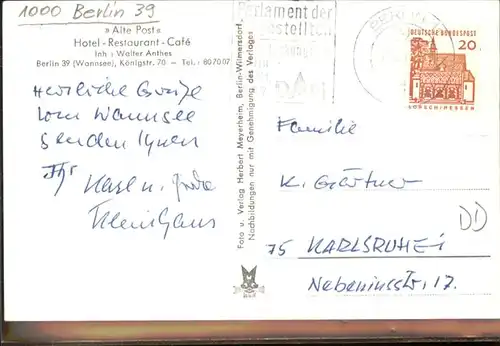 1000 Berlin 39
» Alte Post «
Hotel - Restaurant - Café
Inh.: Walter Anthes
Berlin 39 (Wannsee), Königstr. 70 - Tel.: 807007
Herzliche Grüße
vom Wannsee
senden Ihnen
Ihr
u.
Foto u. Verlag Herbert Meyerheim, Berlin-Wilmersdorf
Nachbildungen nur mit Genehmigung des Verlages
Parlament der
BERLIN
DEUTSCHE BUNDESPOST
20
LORSCH/HESSEN
Familie
K. Gärtner
75 KARLSRUHE 1
17.